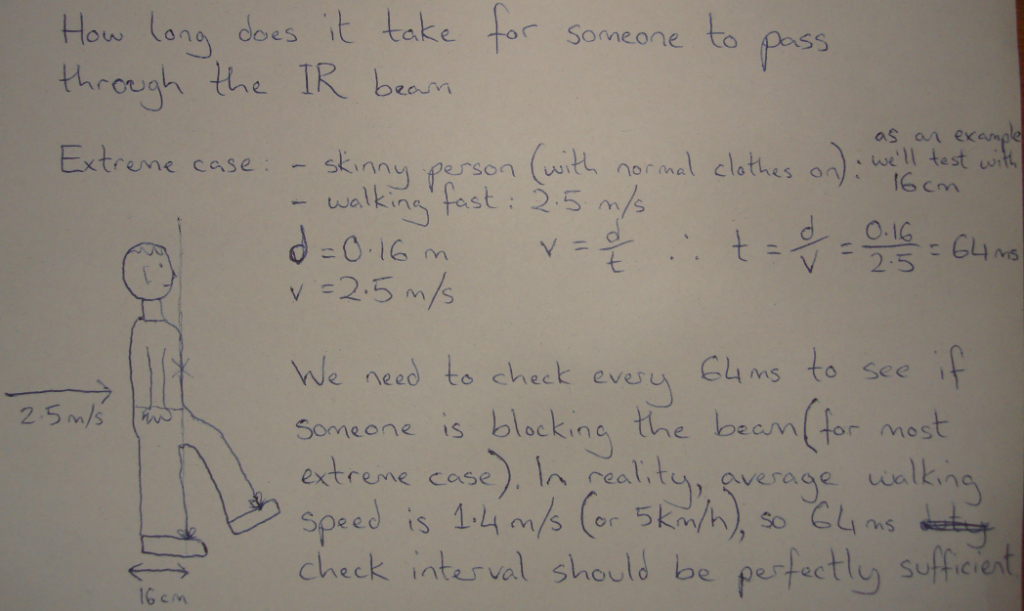 How long does it take for someone to pass
through the IR beam
as an example
Extreme case: - skinny person (with normal clothes on): we'll test with
16cm
- walking fast: 2.5 m/s
d = 0.16 m v = d/t ∴ t = d/v = 0.16/2.5 = 64ms
v = 2.5 m/s
We need to check every 64ms to see if
2.5m/s
someone is blocking the beam (for most
extreme case). In reality, average walking
speed is 1.4m/s (or 5km/h), so 64ms
check interval should be perfectly sufficient
16cm